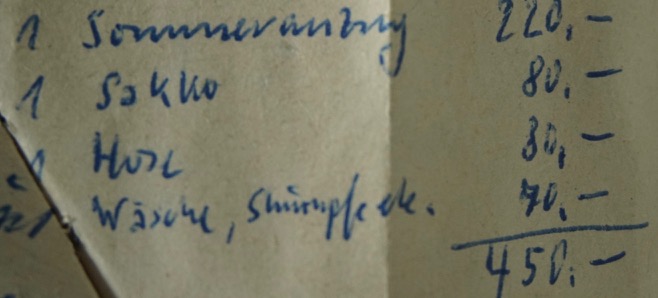 1 Sommeranzug 220,-
1 Sakko 80,-
1 Hose 80,-
Wäsche, Strümpfe etc. 70,-
450,-